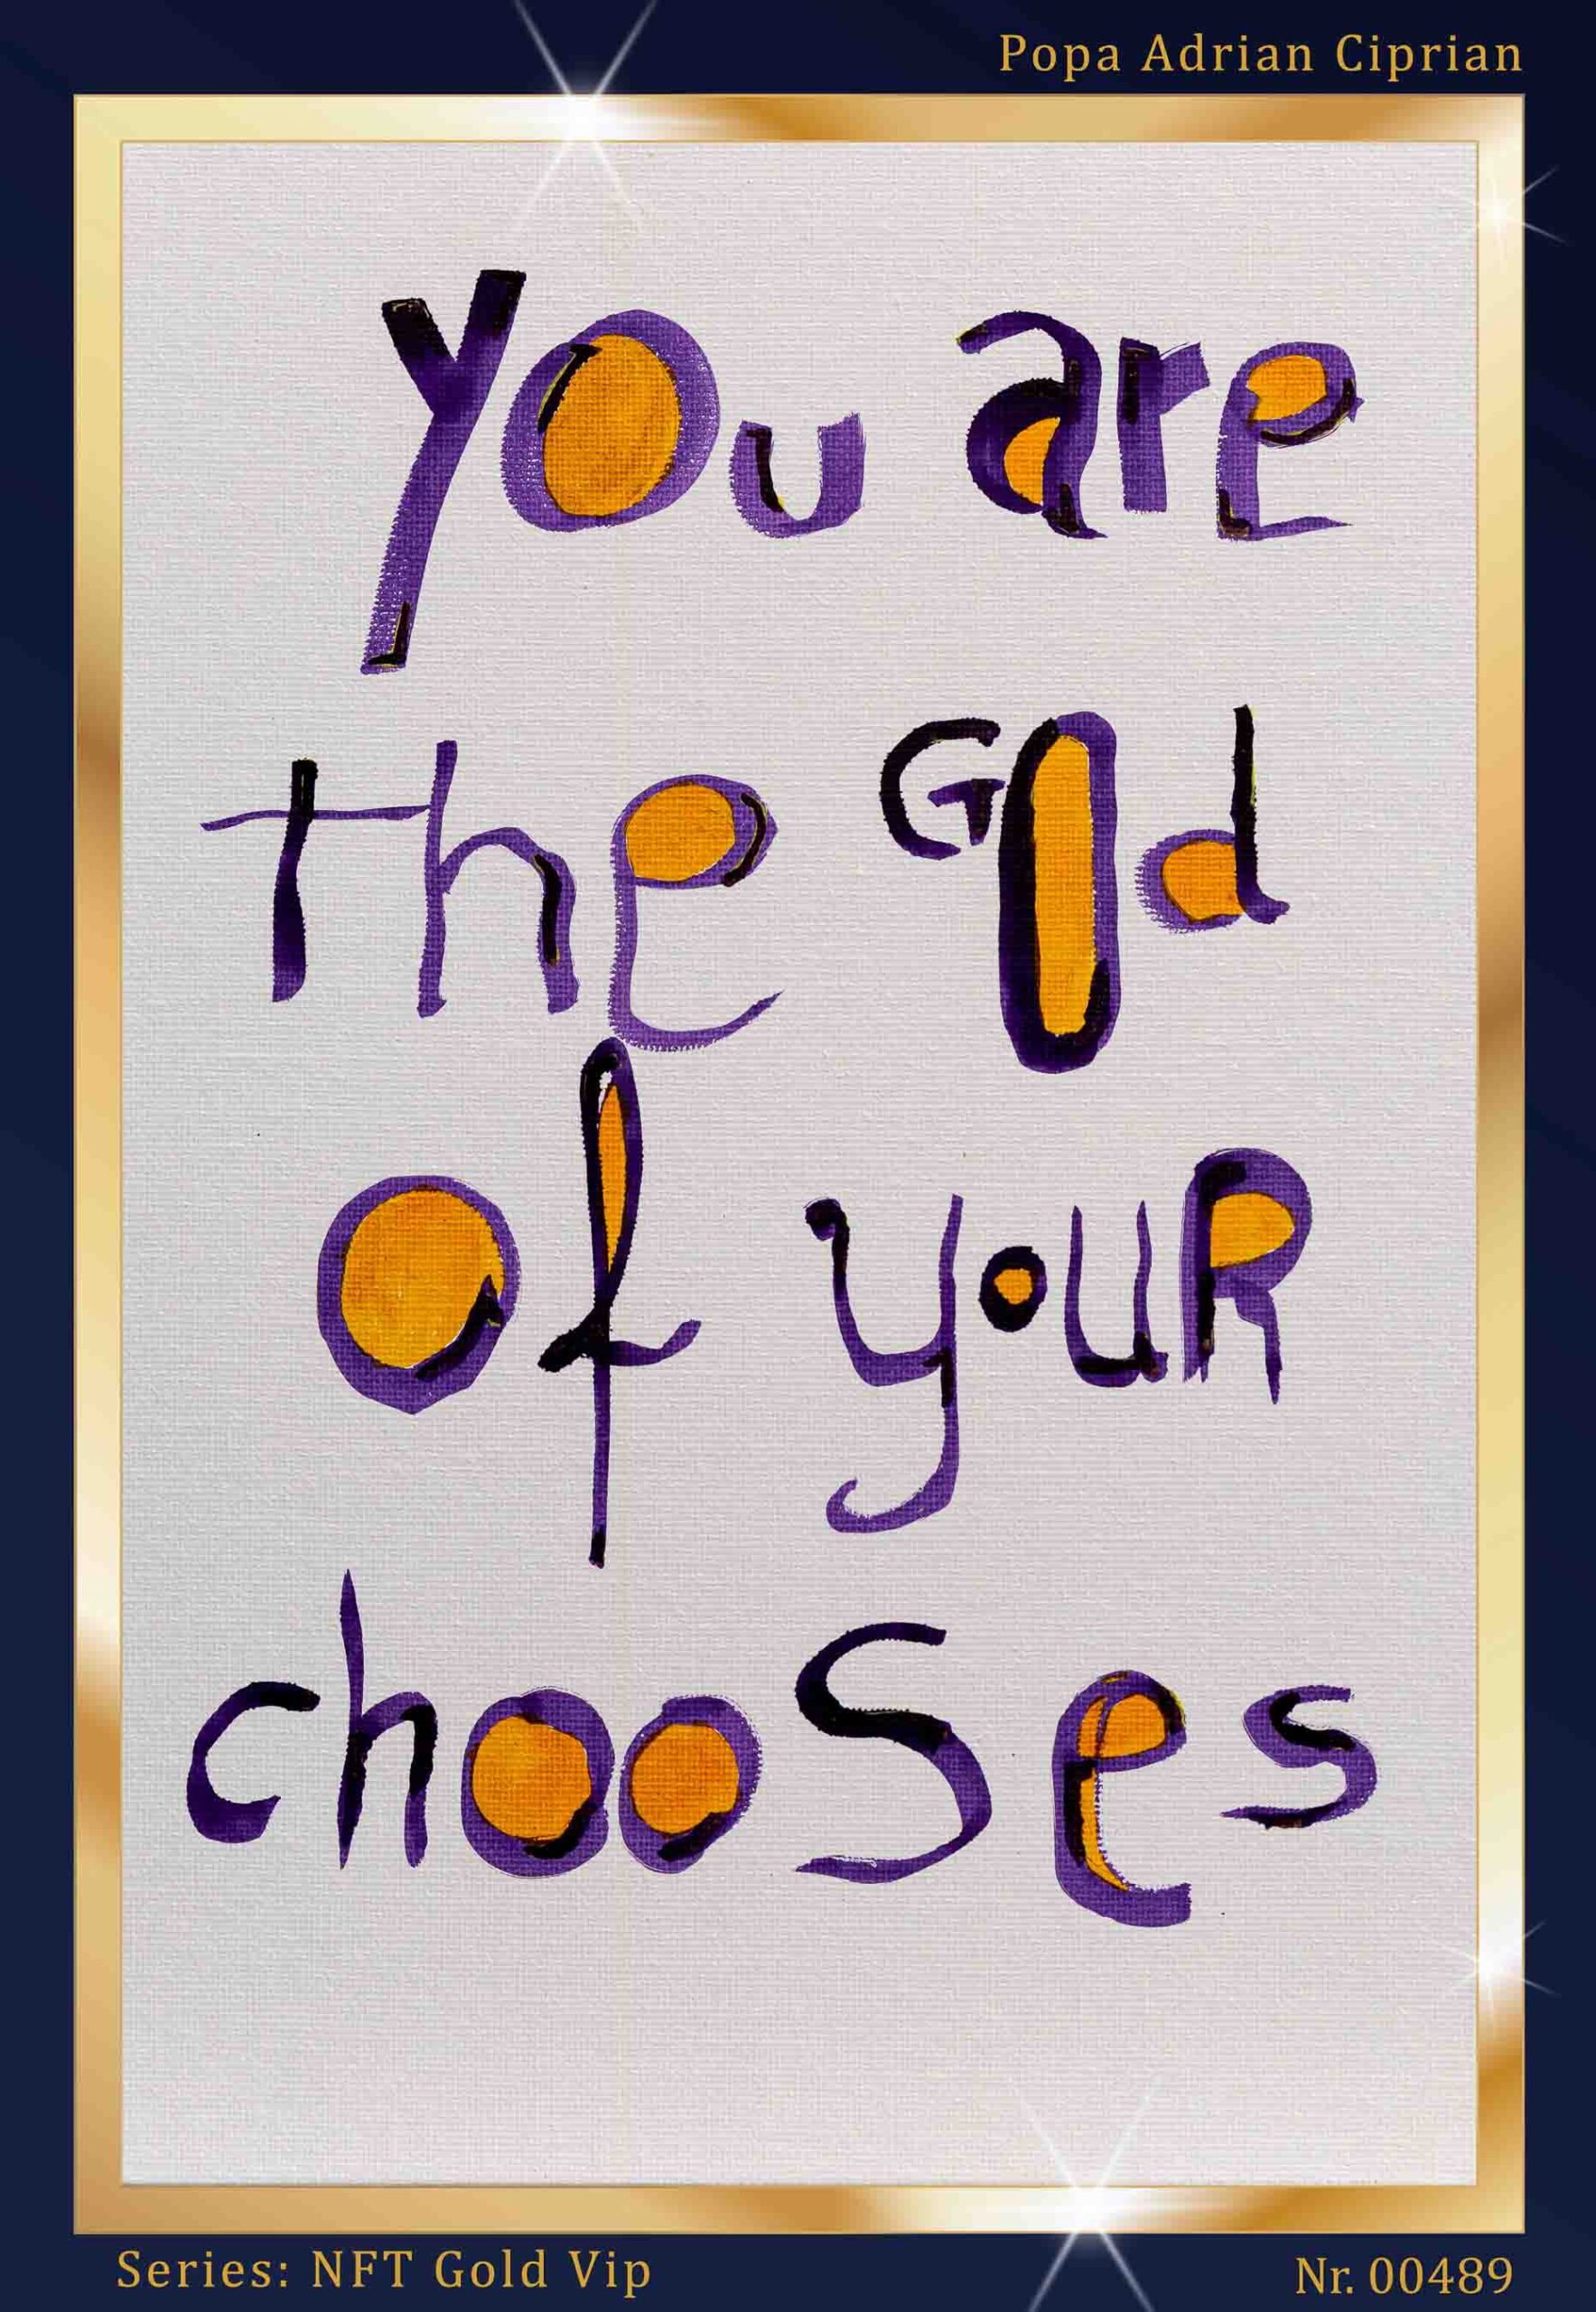 Popa Adrian Ciprian
you are
the God
of youR
chooSes
Series: NFT Gold Vip
Nr. 00489